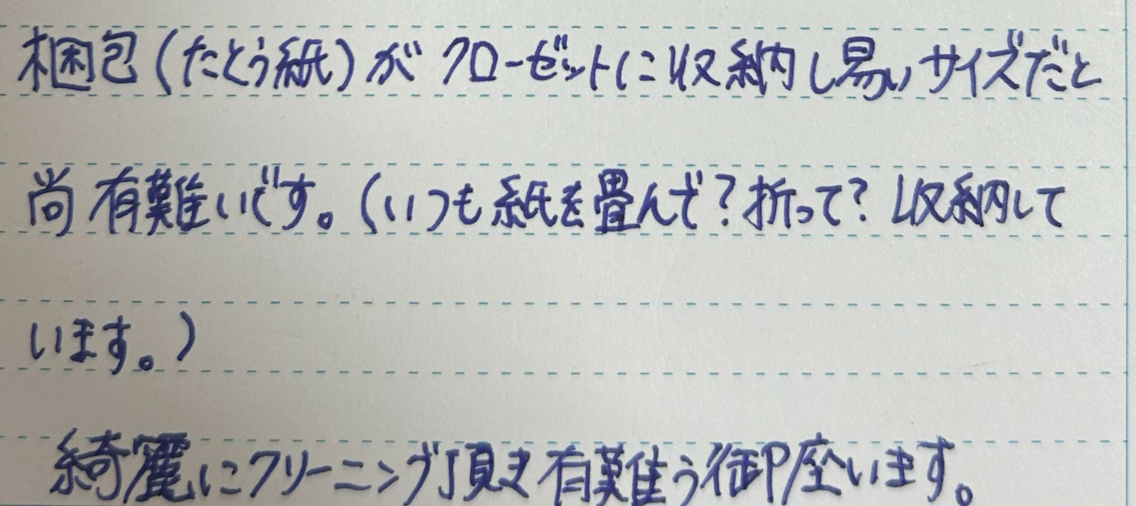 梱包(たとう紙)がクローゼットに収納し易いサイズだと
尚有難いです。(いつも紙を畳んで?折って?収納して
います。)
綺麗にクリーニング頂き有難う御座います。